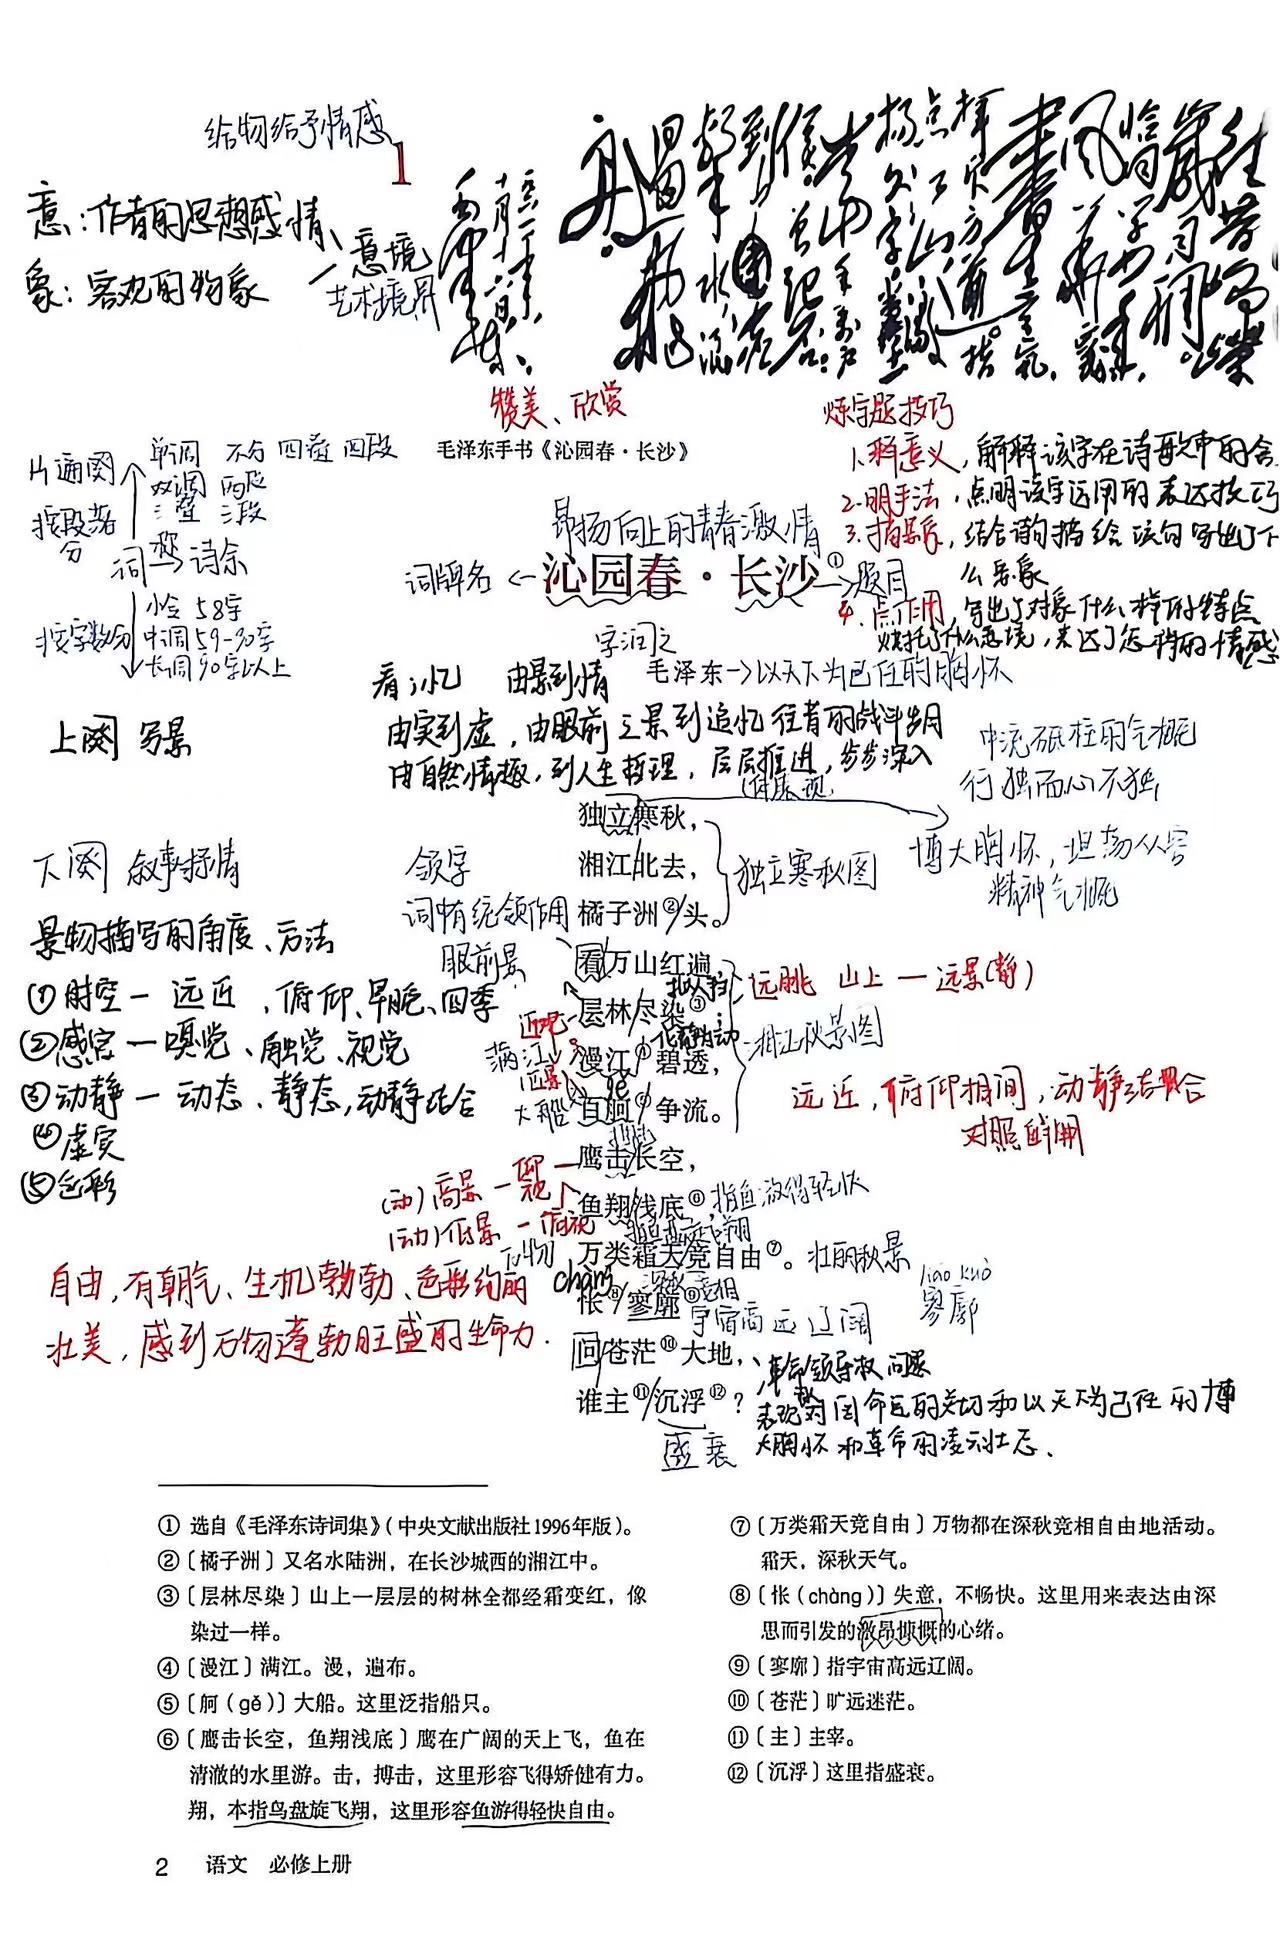 给物给予情感
1
意：作者的思想感情
象：客观的物象
意境
艺术境界
赞美、欣赏
毛泽东手书《沁园春·长沙》
炼字题技巧
1.释意义，解释该字在诗歌中的含
2.明手法，点明该字运用的表达技巧
3.描景象，结合诗句描绘该句写出了什
么景象
4.点作用，写出了对象什么样的特点
烘托了什么意境，表达了怎样的情感
片遍阕
按段落
分
单调 不分 四叠 四段
双调 两段
三叠 三段
词 称 诗余
按字数分
小令 58字
中调 59-90字
长调 90字以上
昂扬向上的青春激情
词牌名
沁园春·长沙①
题目
字润之
毛泽东->以天下为己任的胸怀
看;忆 由景到情
由实到虚，由眼前之景到追忆往昔的战斗岁月
由自然情趣，到人生哲理，层层推进，步步深入
上阕 写景
中流砥柱的气概
行独而心不独
体展现
独立寒秋，
湘江北去，
橘子洲②头。
独立寒秋图
博大胸怀，坦荡从容
精神气概
下阕 叙事抒情
领字
词中有统领作用
眼前景
景物描写的角度、方法
①时空一远近，俯仰、早晚、四季
②感官一嗅觉、触觉、视觉
③动静一动态、静态，动静结合
④虚实
⑤色彩
看万山红遍，
层林尽染③；
漫江④碧透，
百舸⑤争流。
远眺 山上一远景(静)
化静为动
湘江秋景图
近观
满江
近景
大船
gě
远近，俯仰相间，动静结合
对照鲜明
鹰击长空，
鱼翔浅底⑥，
万类霜天竞自由⑦。
(动)高景一仰视
(动)低景一俯视
指鱼游得轻快
万物
壮丽秋景
自由，有朝气、生机勃勃、色彩绚丽
壮美，感到万物蓬勃旺盛的生命力.
chàng
怅⑧寥廓⑨，
宇宙高远辽阔
liáo kuò
寥廓
问苍茫⑩大地，
谁主⑪沉浮⑫？
革命领导权问题
表现对国命运的关切和以天下为己任的博
大胸怀和革命的凌云壮志.
盛衰
① 选自《毛泽东诗词集》（中央文献出版社1996年版）。
②〔橘子洲〕又名水陆洲，在长沙城西的湘江中。
③〔层林尽染〕山上一层层的树林全都经霜变红，像
染过一样。
④〔漫江〕满江。漫，遍布。
⑤〔舸（gě）〕大船。这里泛指船只。
⑥〔鹰击长空，鱼翔浅底〕鹰在广阔的天上飞，鱼在
清澈的水里游。击，搏击，这里形容飞得矫健有力。
翔，本指鸟盘旋飞翔，这里形容鱼游得轻快自由。
⑦〔万类霜天竞自由〕万物都在深秋竞相自由地活动。
霜天，深秋天气。
⑧〔怅（chàng）〕失意，不畅快。这里用来表达由深
思而引发的激昂慷慨的心绪。
⑨〔寥廓〕指宇宙高远辽阔。
⑩〔苍茫〕旷远迷茫。
⑪〔主〕主宰。
⑫〔沉浮〕这里指盛衰。
2 语文 必修上册